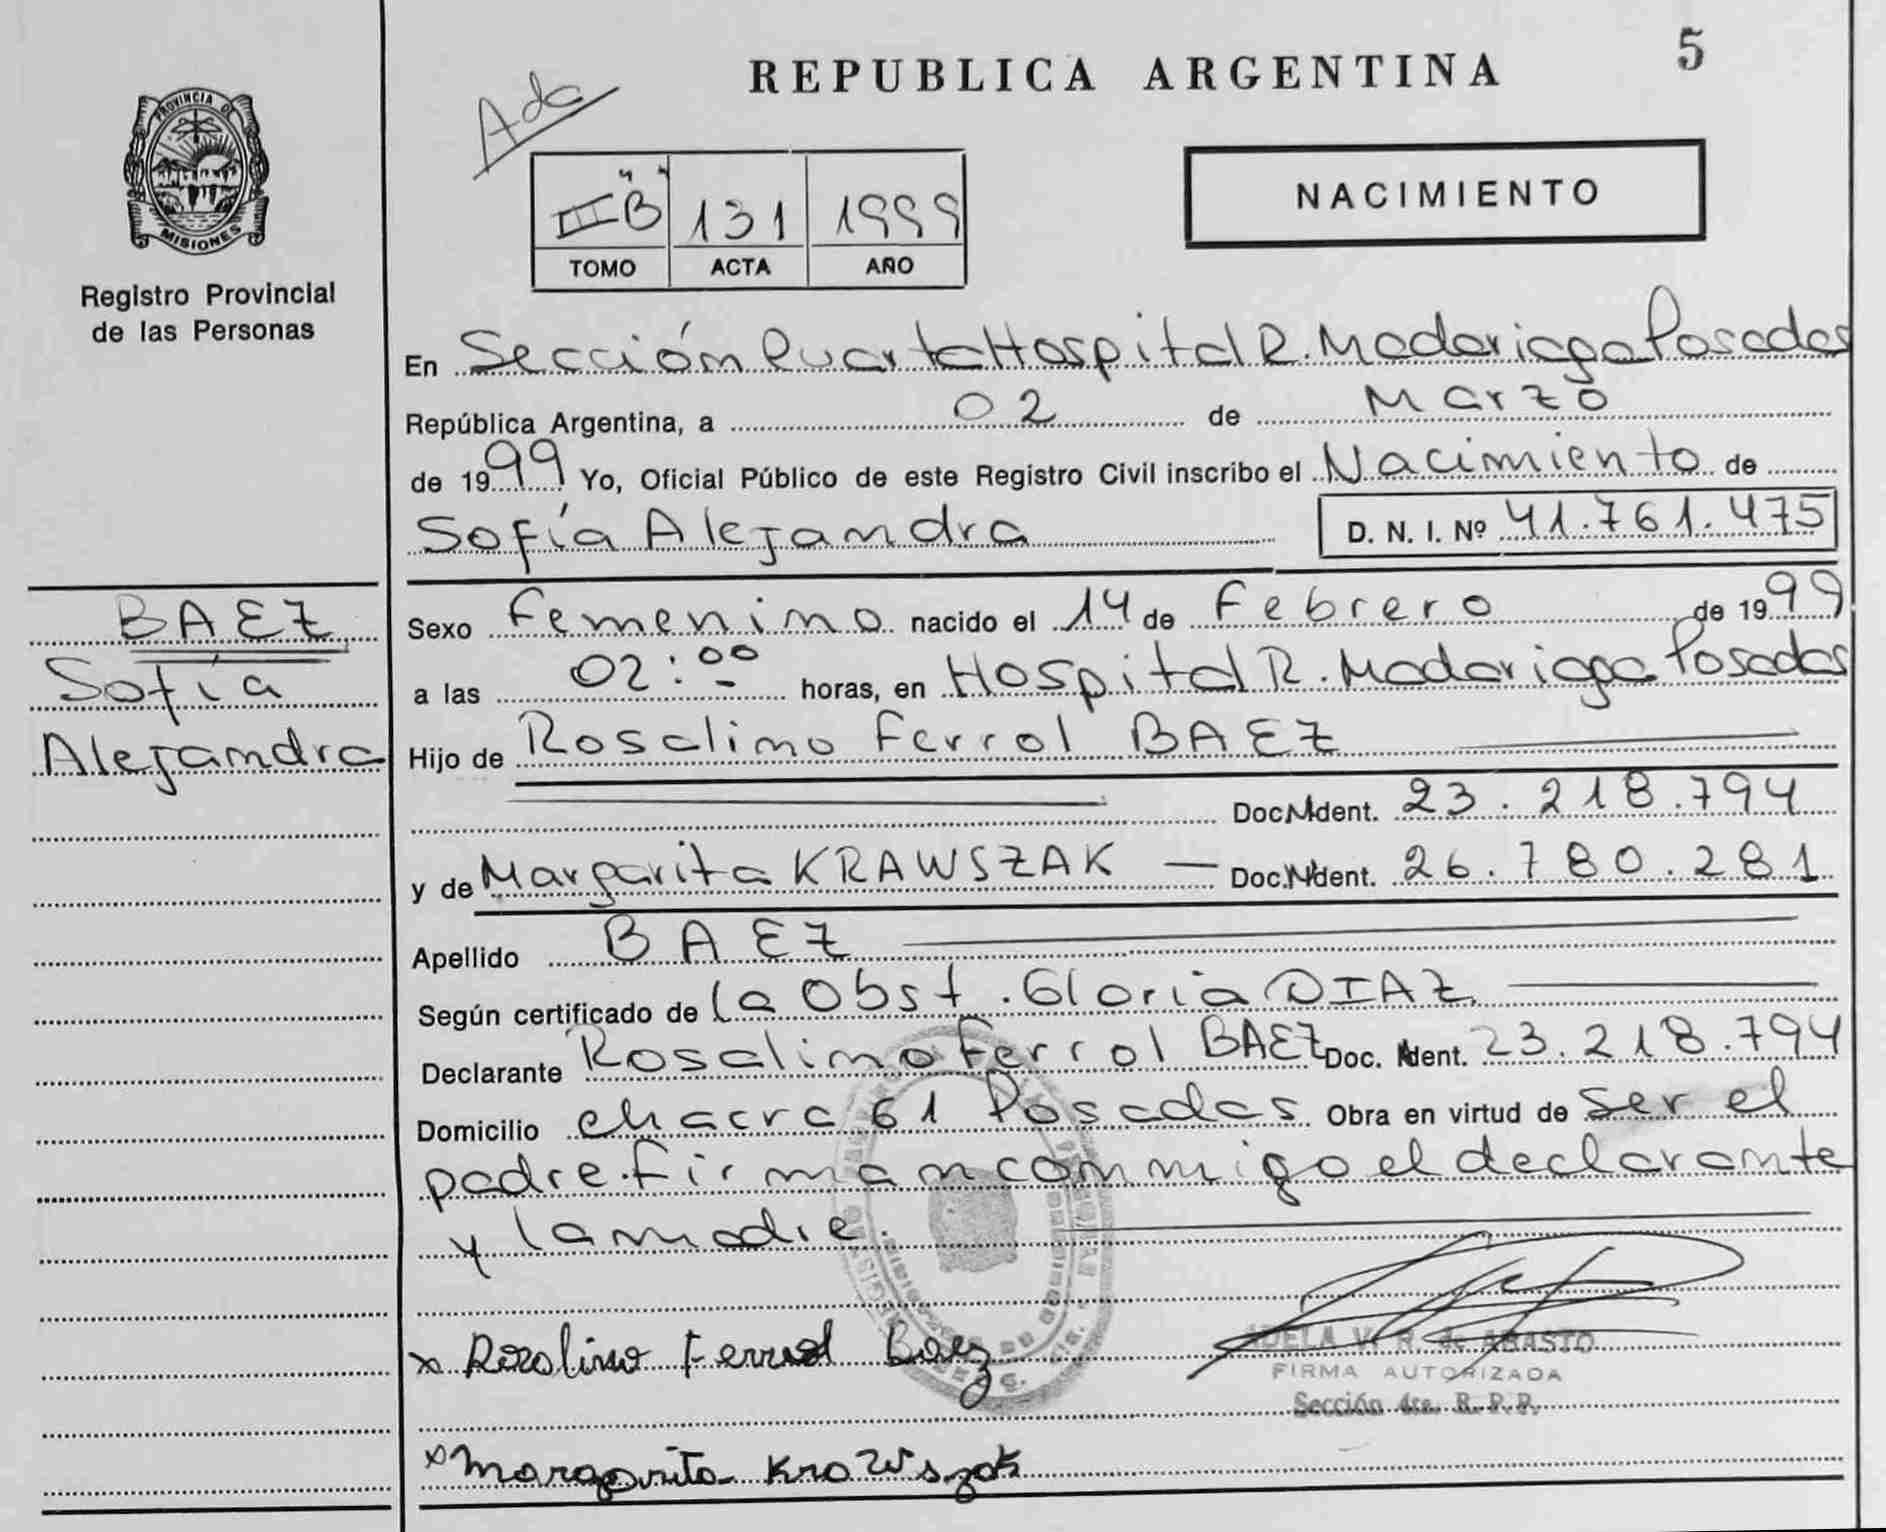 5
REPUBLICA ARGENTINA
Ada
PROVINCIA DE
MISIONES
Registro Provincial
de las Personas
III "B" 131 1999
TOMO ACTA AÑO
NACIMIENTO
En Sección Cuarta Hospital R. Madariaga Posadas
República Argentina, a 02 de Marzo
de 1999 Yo, Oficial Público de este Registro Civil inscribo el Nacimiento de
Sofía Alejandra D. N. I. Nº 41.761.475
BAEZ
Sofía
Alejandra
Sexo Femenino nacido el 14 de Febrero de 1999
a las 02:00 horas, en Hospital R. Madariaga Posadas
Hijo de Rosalino Ferrol BAEZ
Doc. Ident. 23.218.794
y de Margarita KRAWSZAK — Doc. Ident. 26.780.281
Apellido BAEZ
Según certificado de la Obst. Gloria DIAZ
Declarante Rosalino Ferrol BAEZ Doc. Ident. 23.218.794
Domicilio chacra 61 Posadas Obra en virtud de ser el
padre. Firman conmigo el declarante
y la madre.
x Rosalino Ferrol Baez
ADELA V. R. de ABASTO
FIRMA AUTORIZADA
Sección 4ta. R. P. P.
x Margarita Krawszak